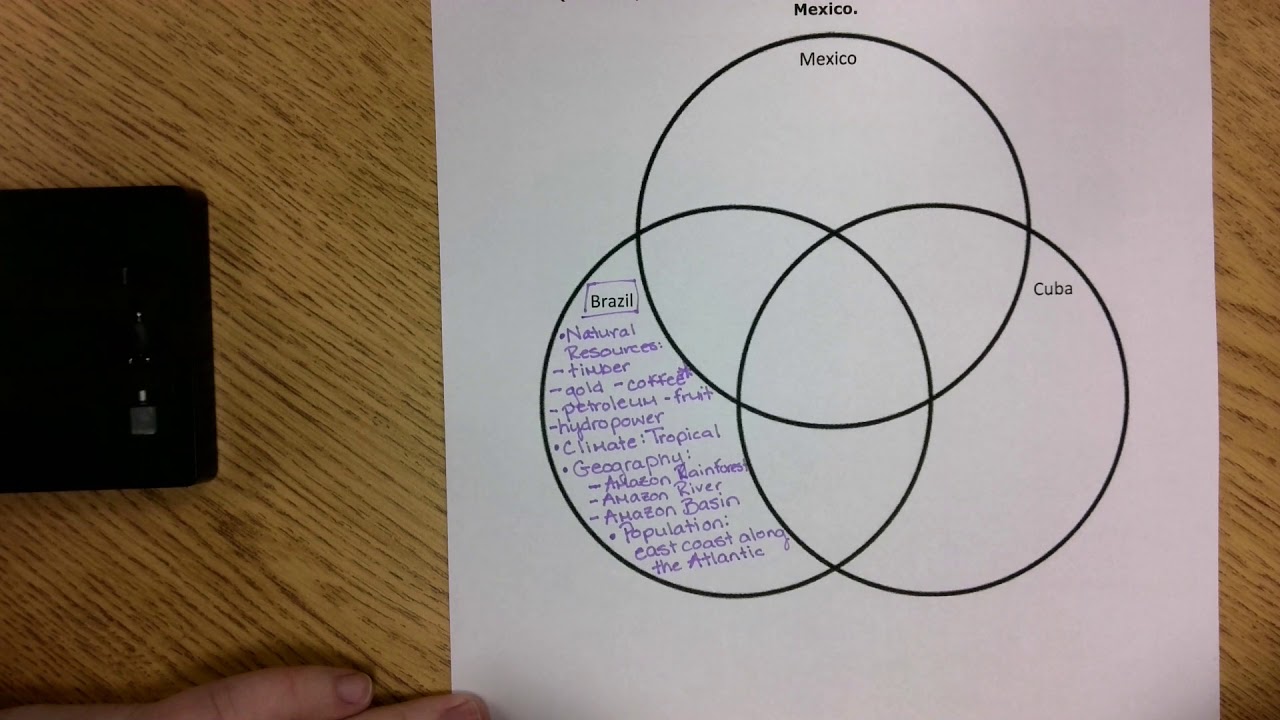 Mexico.
Mexico
Cuba
Brazil
• Natural
Resources:
- timber
- gold - coffee*
- petroleum - fruit
- hydropower
• Climate: Tropical
• Geography:
- Amazon Rainforest
- Amazon River
- Amazon Basin
• Population:
east coast along
the Atlantic